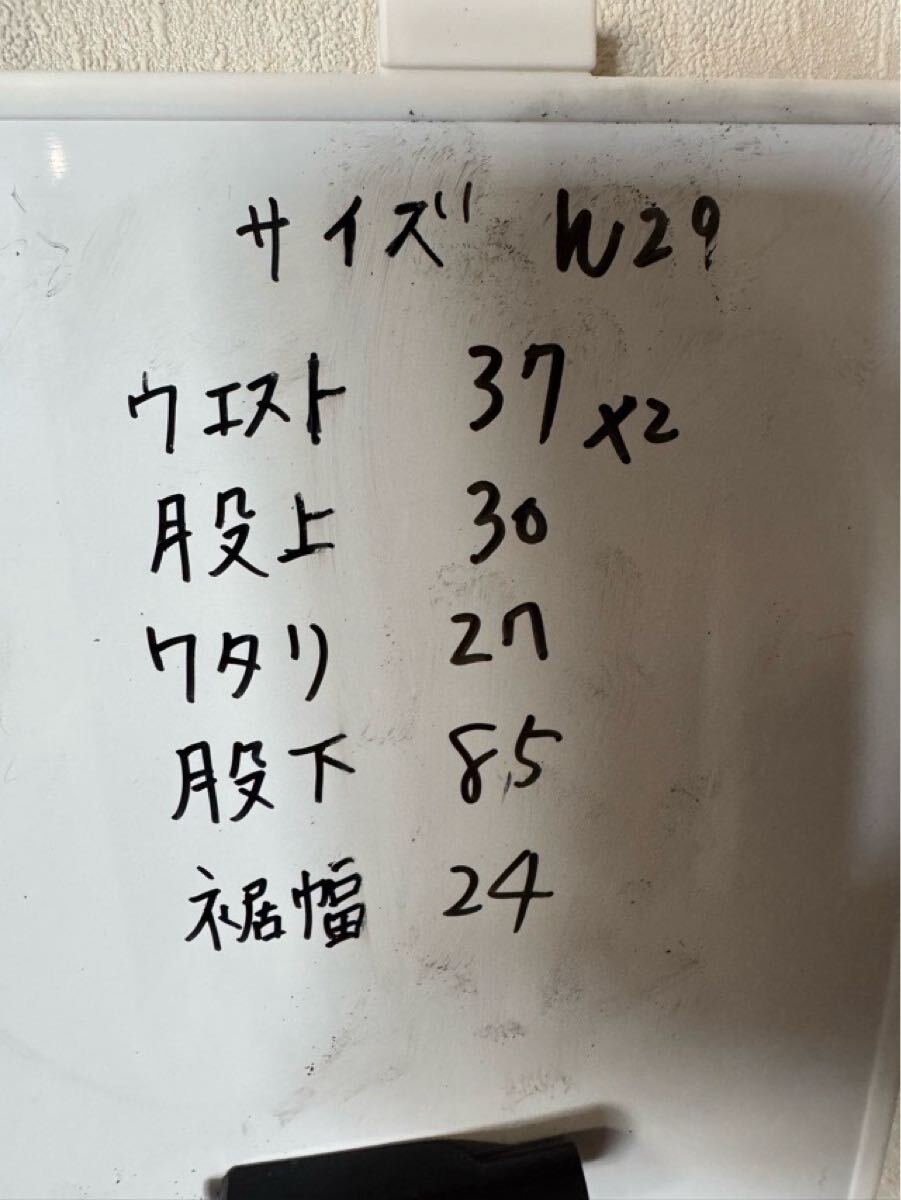 サイズ W29
ウエスト 37 x2
股上 30
ワタリ 27
股下 85
裾幅 24